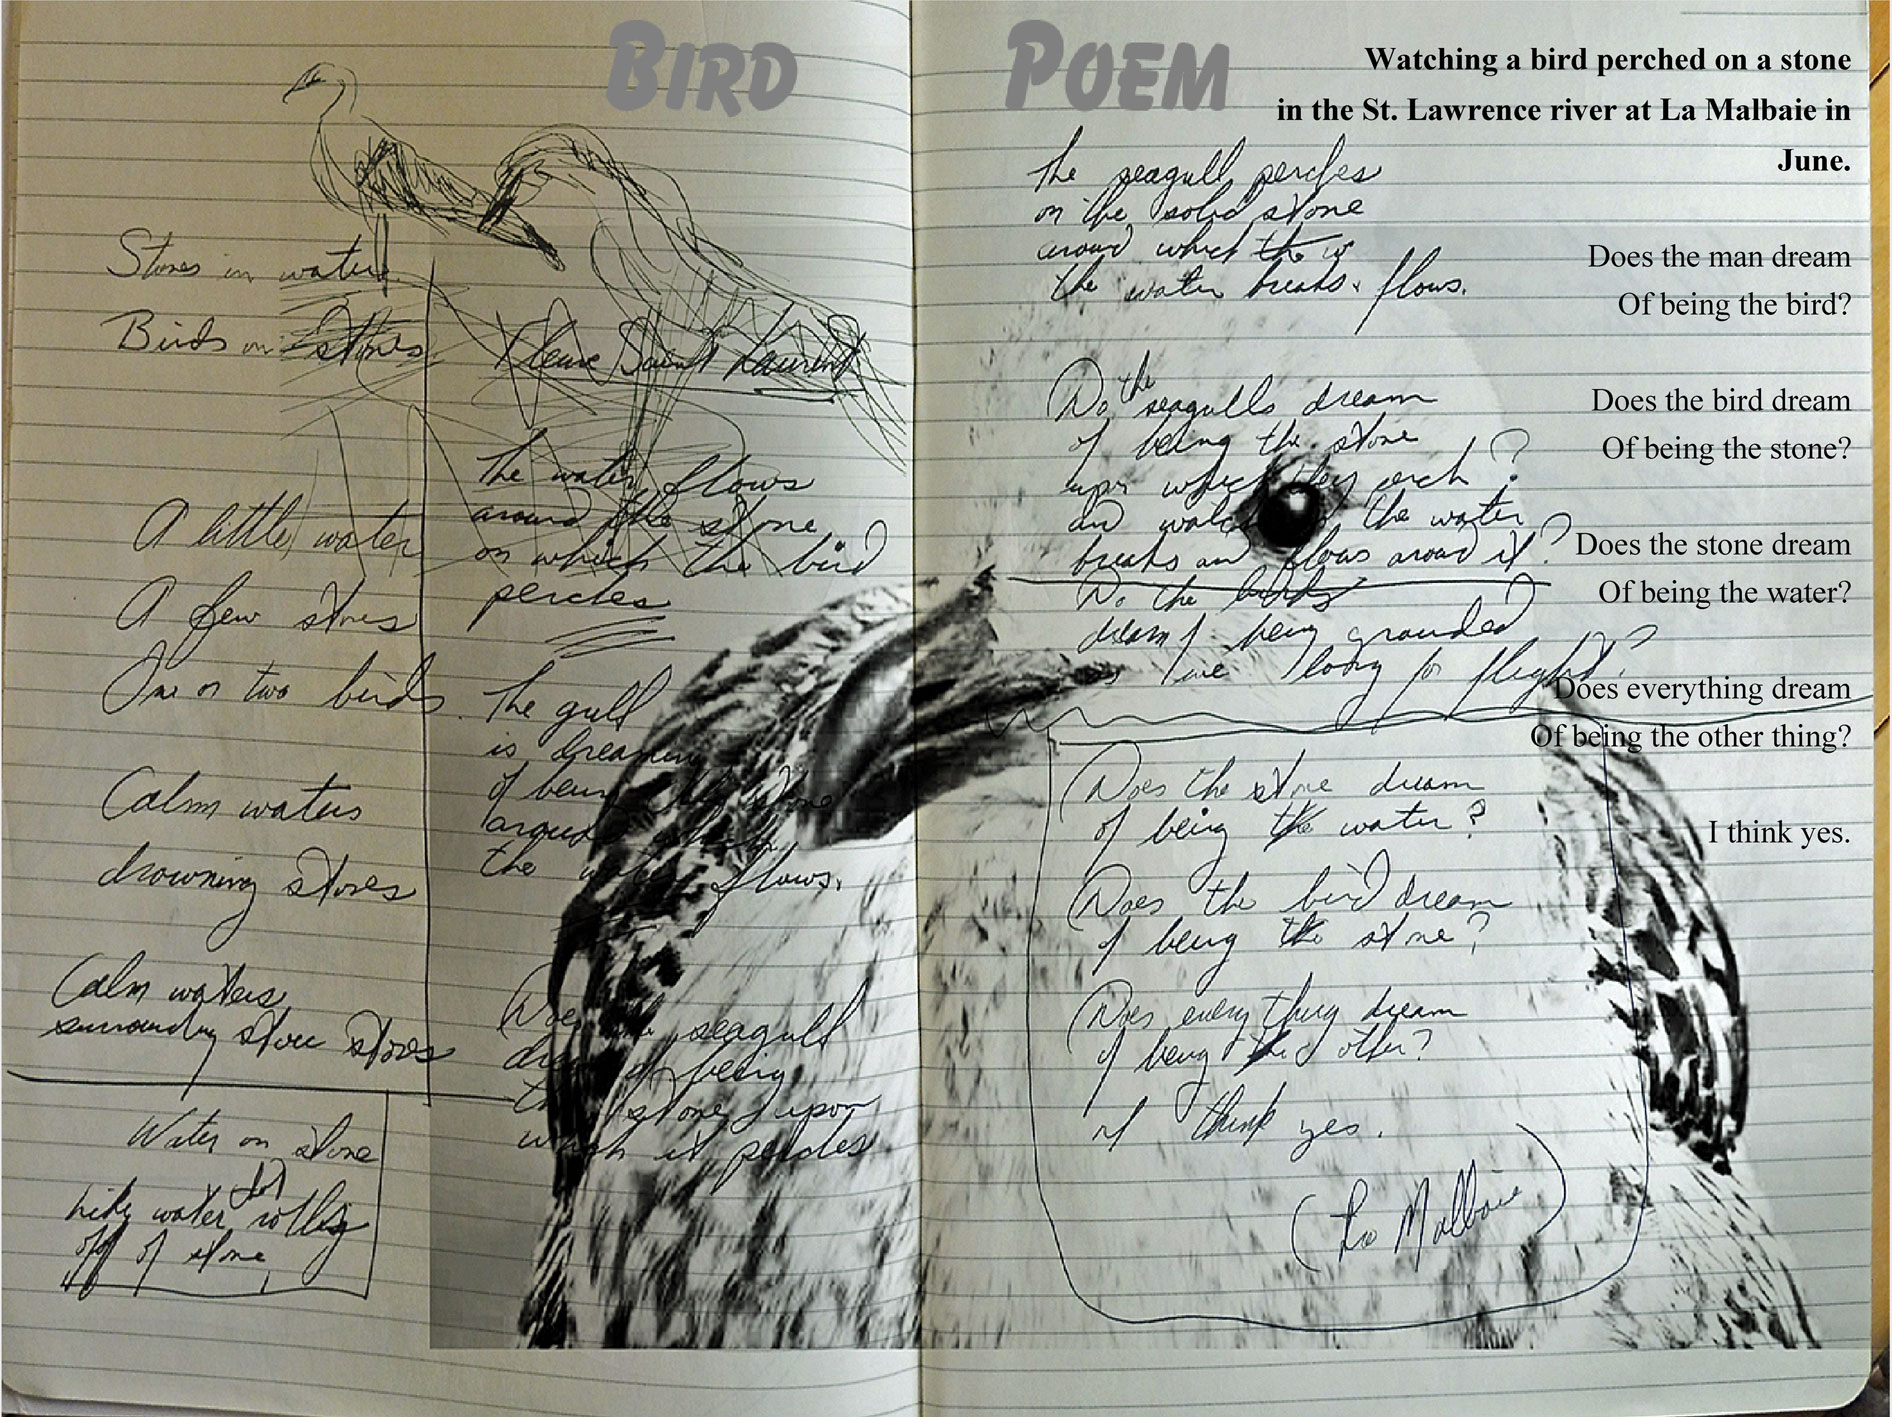 BIRD POEM
Watching a bird perched on a stone
in the St. Lawrence river at La Malbaie in
June.
Does the man dream
Of being the bird?
Does the bird dream
Of being the stone?
Does the stone dream
Of being the water?
Does everything dream
Of being the other thing?
I think yes.
Stones in water
Birds on stones
A little water
A few stones
One or two birds.
Calm waters
drowning stones
Calm waters
surrounding stones
Water on stone
water rolling
off of stone
Fleuve Saint Laurent
The water flows
around the stone
on which the bird
perches
The gull
is dreaming
of being the stone
around which
the water flows.
Does the seagull
dream of being
the stone upon
which it perches
The seagull perches
on the solid stone
around which
the water breaks & flows.
Do the seagulls dream
of being the stone
upon which they perch?
and the water
breaks and flows around it?
Do the birds
dream of being grounded
for flight?
Does the stone dream
of being the water?
Does the bird dream
of being the stone?
Does everything dream
of being the other?
I think yes.
(La Malbaie)